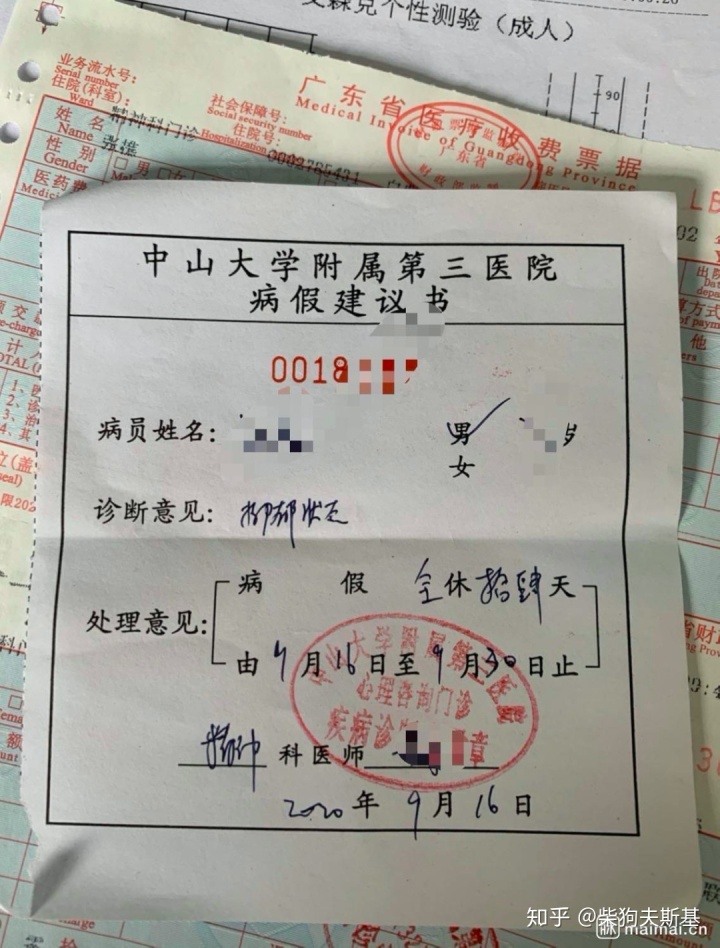 艾森克个性测验（成人）
90
业务流水号：
Serial number
住院(科室)：
Ward
精神科门诊
社会保障号：
Social security number
住院号：
Hospitalization
0003785431
广东省医疗收费票据
Medical Invoice of Guangdong Province
姓名
Name
性别
Gender
男
女
医药费
广东省
中山大学附属第三医院
病假建议书
0018
病员姓名：
男
岁
女
诊断意见：抑郁状态
处理意见：
病假 全休拾肆天
由9月16日至9月30日止
中山大学附属第三医院
心理咨询门诊
疾病诊断
章
精神科医师
2020年9月16日
知乎 @柴狗夫斯基
脉 maimai.cn